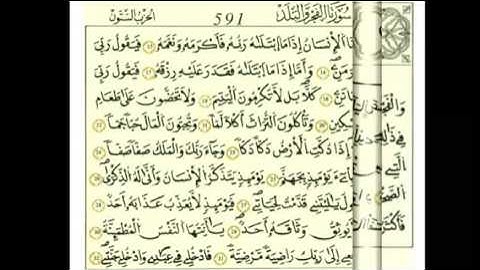 سُورَتَا الفَجْرِ وَالبَلَدِ 591 الحِزْبُ السِّتُّونَ
الْإِنسَانُ إِذَا مَا ابْتَلَاهُ رَبُّهُ فَأَكْرَمَهُ وَنَعَّمَهُ فَيَقُولُ رَبِّي
وَأَمَّا إِذَا مَا ابْتَلَاهُ فَقَدَرَ عَلَيْهِ رِزْقَهُ فَيَقُولُ رَبِّي
كَلَّا بَل لَا تُكْرِمُونَ الْيَتِيمَ وَلَا تَحَاضُّونَ عَلَى طَعَامِ
وَتَأْكُلُونَ التُّرَاثَ أَكْلًا لَّمًّا وَتُحِبُّونَ الْمَالَ حُبًّا جَمًّا
إِذَا دُكَّتِ الْأَرْضُ دَكًّا دَكًّا وَجَاءَ رَبُّكَ وَالْمَلَكُ صَفًّا صَفًّا
يَوْمَئِذٍ بِجَهَنَّمَ يَوْمَئِذٍ يَتَذَكَّرُ الْإِنسَانُ وَأَنَّى لَهُ الذِّكْرَى
يَقُولُ يَالَيْتَنِي قَدَّمْتُ لِحَيَاتِي فَيَوْمَئِذٍ لَّا يُعَذِّبُ عَذَابَهُ أَحَدٌ
يُوثِقُ وَثَاقَهُ أَحَدٌ يَاأَيَّتُهَا النَّفْسُ الْمُطْمَئِنَّةُ
إِلَى رَبِّكِ رَاضِيَةً مَّرْضِيَّةً فَادْخُلِي فِي عِبَادِي وَادْخُلِي جَنَّتِي